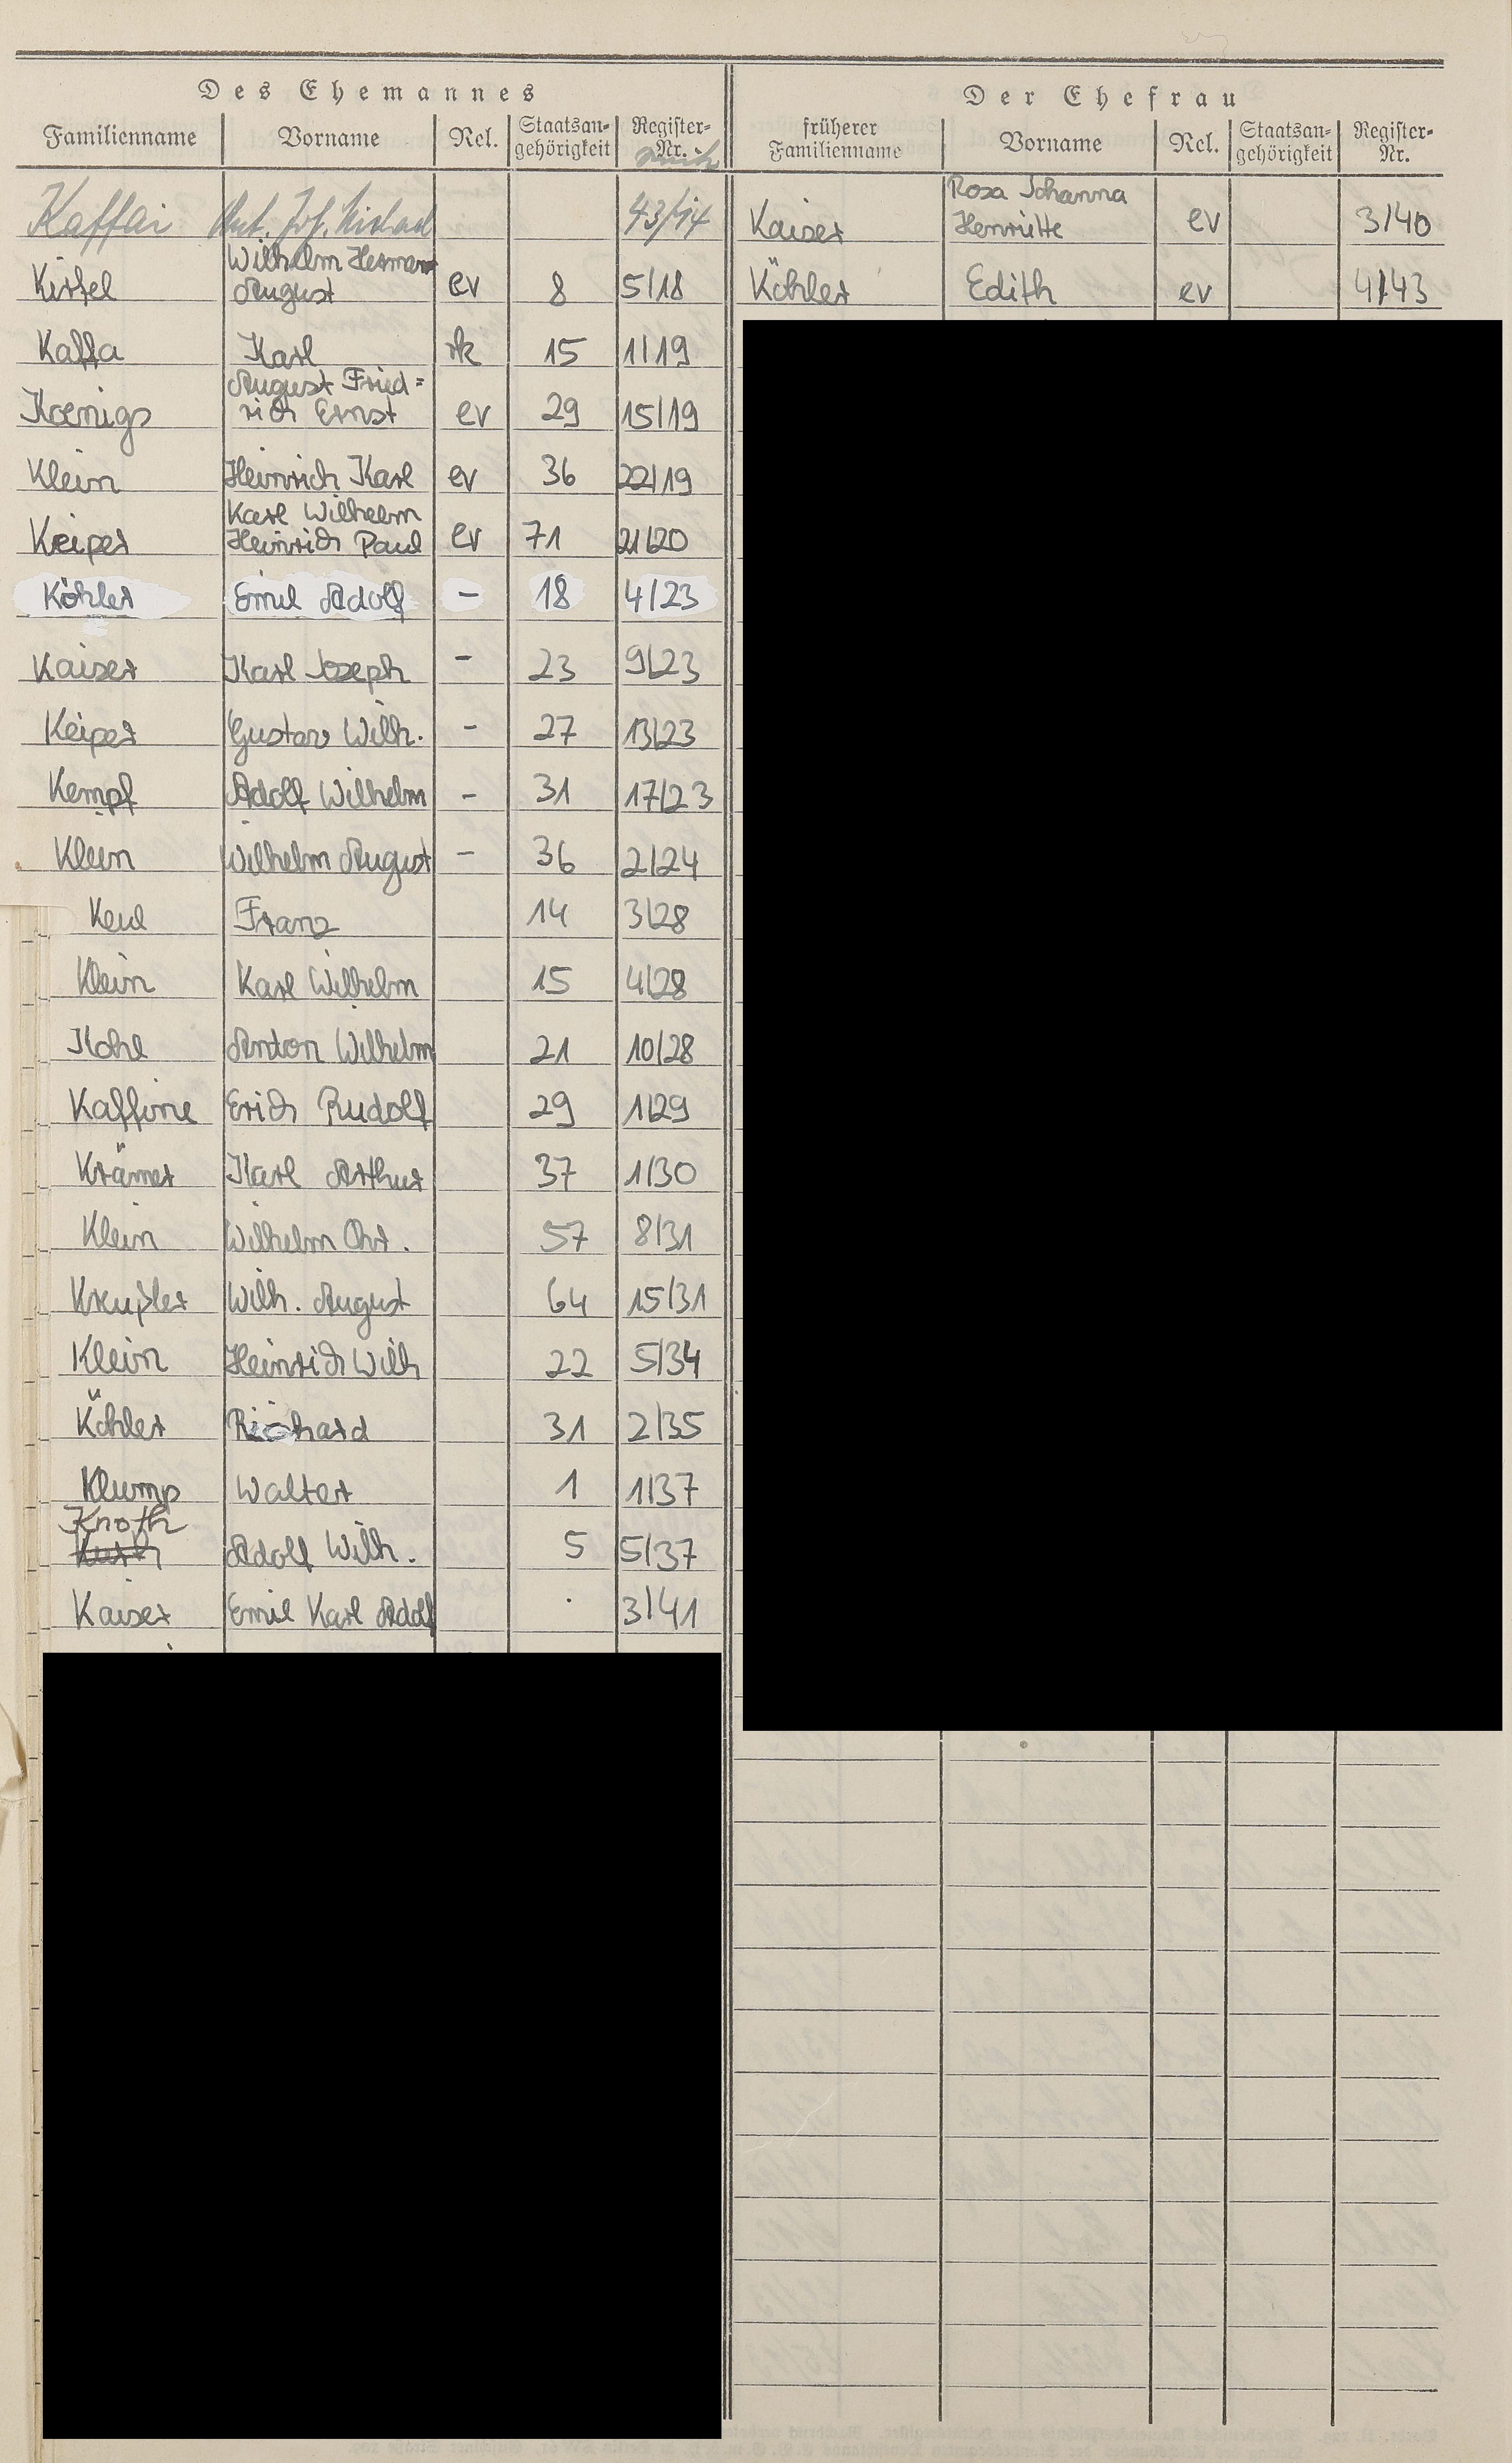 Des Ehemannes
Familienname Vorname Rel. Staatsan-gehörigkeit Register-Nr.
Kaffai Ant. Jos. Michael 43/14
Wilhelm Hermann
Kirfel August ev 8 5/18
Kaffa Karl rk 15 1/19
August Fried=
Koenigs rich Ernst ev 29 15/19
Klein Heinrich Karl ev 36 22/19
Karl Wilhelm
Keiper Heinrich Paul ev 71 21/20
Köhler Emil Adolf - 18 4/23
Kaiser Karl Joseph - 23 9/23
Keiper Gustav Wilh. - 27 13/23
Kempf Adolf Wilhelm - 31 17/23
Klein Wilhelm August - 36 2/24
Keul Franz 14 3/28
Klein Karl Wilhelm 15 4/28
Kohl Anton Wilhelm 21 10/28
Kaffine Erich Rudolf 29 1/29
Krämer Karl Arthur 37 1/30
Klein Wilhelm Chr. 57 8/31
Wilh. August 64 15/31
Klein Heinrich Wilh 22 5/34
Köhler Richard 31 2/35
Klump Walter 1 1/37
Knoth
Adolf Wilh. 5 5/37
Kaiser Emil Karl Adolf 3/41
Der Ehefrau
früherer Familienname Vorname Rel. Staatsan-gehörigkeit Register-Nr.
Rosa Johanna
Kaiser Henriette ev 3/40
Köhler Edith ev 4/43